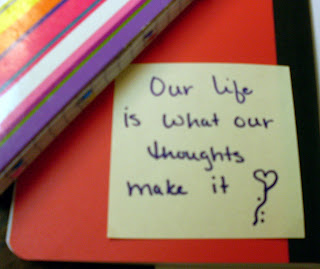 Our life
is what our
thoughts
make it